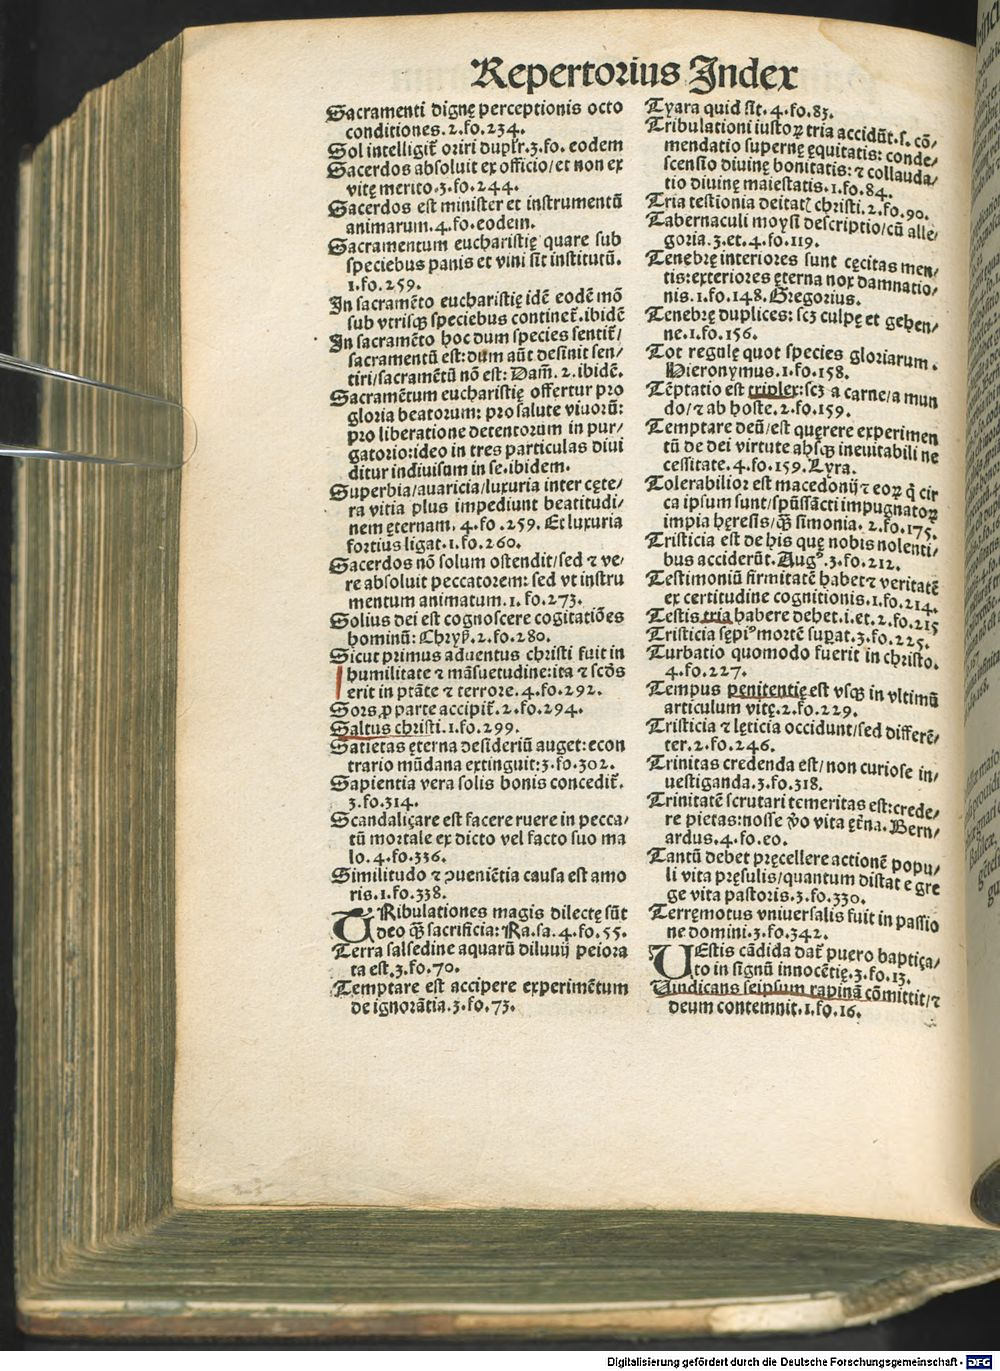 Repertorius Index
Sacramenti dignę perceptionis octo
conditiones.2.fo.234.
Sol intelligit̄ oriri duplr̄.3.fo.eodem
Sacerdos absoluit ex officio/et non ex
vitę merito.3.fo.244.
Sacerdos est minister et instrumentū
animarum.4.fo.eodem.
Sacramentum eucharistię quare sub
speciebus panis et vini sit institutū.
1.fo.259.
In sacramēto eucharistię idē eodē mō
sub vtrisqꝫ speciebus continet̄.ibidē
In sacramēto hoc dum species sentit̄/
sacramentū est:dum aūt desinit sen/
tiri/sacramētū nō est: Dam̄.2.ibidē.
Sacramētum eucharistię offertur pro
gloria beatorum: pro salute viuorū:
pro liberatione detentorum in pur/
gatorio:ideo in tres particulas diui
ditur indiuisum in se.ibidem.
Superbia/auaricia/luxuria inter cęte/
ra vitia plus impediunt beatitudi/
nem ęternam.4.fo.259.Et luxuria
fortius ligat.1.fo.260.
Sacerdos nō solum ostendit/sed ⁊ ve/
re absoluit peccatorem: sed vt instru
mentum animatum.1.fo.273.
Solius dei est cognoscere cogitatiōes
hominū: Chryß.2.fo.280.
Sicut primus aduentus christi fuit in
humilitate ⁊ māsuetudine:ita ⁊ scd̄s
erit in ptāte ⁊ terrore.4.fo.292.
Sors ꝓ parte accipit̄.2.fo.294.
Saltus christi.1.fo.299.
Satietas ęterna desideriū auget:econ
trario mūdana extinguit:3.fo.302.
Sapientia vera solis bonis concedit̄.
3.fo.314.
Scandaliçare est facere ruere in pecca/
tū mortale ex dicto vel facto suo ma
lo.4.fo.336.
Similitudo ⁊ ꝯueniētia causa est amo
ris.1.fo.338.
TRibulationes magis dilectę sūt
deo qꝫ̄ sacrificia: Ra.sa.4.fo.55.
Terra salsedine aquarū diluuij peiora
ta est.3.fo.70.
Temptare est accipere experimētum
de ignorātia.3.fo.73.
Tyara quid sit.4.fo.83.
Tribulationi iustoꝝ tria accidūt.s.cō/
mendatio supernę ęquitatis: conde/
scensio diuinę bonitatis: ⁊ collauda/
tio diuinę maiestatis.1.fo.84.
Tria testionia deitatꝭ christi.2.fo.90.
Tabernaculi moysi descriptio/cū alle/
goria.3.et.4.fo.119.
Tenebrę interiores sunt cęcitas men/
tis:exteriores ęterna nox damnatio/
nis.1.fo.148.Gregorius.
Tenebrę duplices: scꝫ culpę et gehen/
ne.1.fo.156.
Tot regulę quot species gloriarum.
Hieronymus.1.fo.158.
Tēptatio est triplex:scꝫ a carne/a mun
do/⁊ ab hoste.2.fo.159.
Temptare deū/est quęrere experimen
tū de dei virtute absqꝫ ineuitabili ne
cessitate.4.fo.159.Lyra.
Tolerabilior est macedonij ⁊ eoꝝ q̇ cir
ca ipsum sunt/spūssācti impugnatoꝝ
impia hęresis/qꝫ̄ simonia.2.fo.175.
Tristicia est de his quę nobis nolenti/
bus acciderūt.Augꝰ.3.fo.212.
Testimoniū firmitatē habet ⁊ veritatē
ex certitudine cognitionis.1.fo.214.
Testis tria habere debet.i.et.2.fo.215
Tristicia sępiꝰ mortē suꝑat.3.fo.225.
Turbatio quomodo fuerit in christo.
4.fo.227.
Tempus penitentię est vsqꝫ in vltimū
articulum vitę.2.fo.229.
Tristicia ⁊ lęticia occidunt/sed differē/
ter.2.fo.246.
Trinitas credenda est/non curiose in/
uestiganda.3.fo.318.
Trinitatē scrutari temeritas est:crede/
re pietas:nosse v̊o vita ęt̄na.Bern/
ardus.4.fo.eo.
Tantū debet pręcellere actionē popu/
li vita pręsulis/quantum distat e gre
ge vita pastoris.3.fo.330.
Terręmotus vniuersalis fuit in passio
ne domini.3.fo.342.
UEstis cādida dat̄ puero baptiça/
to in signū innocētię.3.fo.13.
Uindicans seipsum rapinā cōmittit/⁊
deum contemnit.1.fo.16.
Digitalisierung gefördert durch die Deutsche Forschungsgemeinschaft - DFG